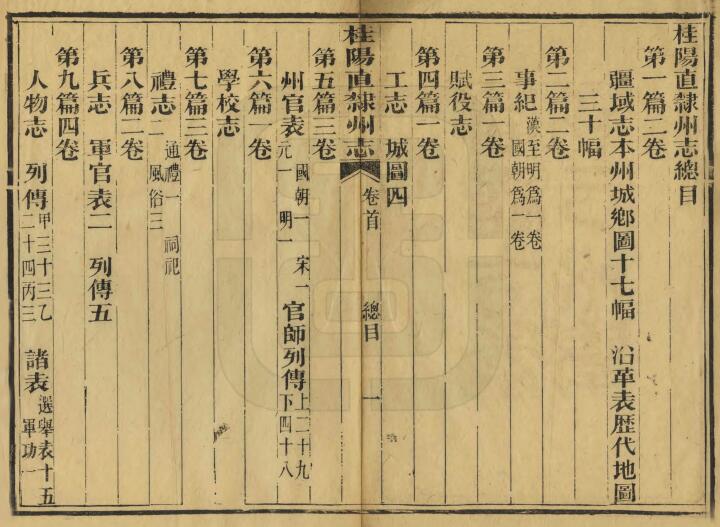 桂陽直隸州志總目
第一篇二卷
疆域志本州城鄉圖十七幅 沿革表歷代地圖
三十幅
第二篇二卷
事紀 漢至明爲一卷
國朝爲一卷
第三篇一卷
賦役志
第四篇一卷
工志 城圖四
桂陽直隸州志 卷首 總目 一
第五篇三卷
州官表 國朝一 宋一
元一 明一
官師列傳 上二十九
下四十八
第六篇一卷
學校志
第七篇三卷
禮志 通禮一 祠祀
二 風俗三
第八篇一卷
兵志 軍官表二 列傳五
第九篇四卷
人物志 列傳 甲三十三乙
二十四丙三
諸表 選舉表十五
軍功一